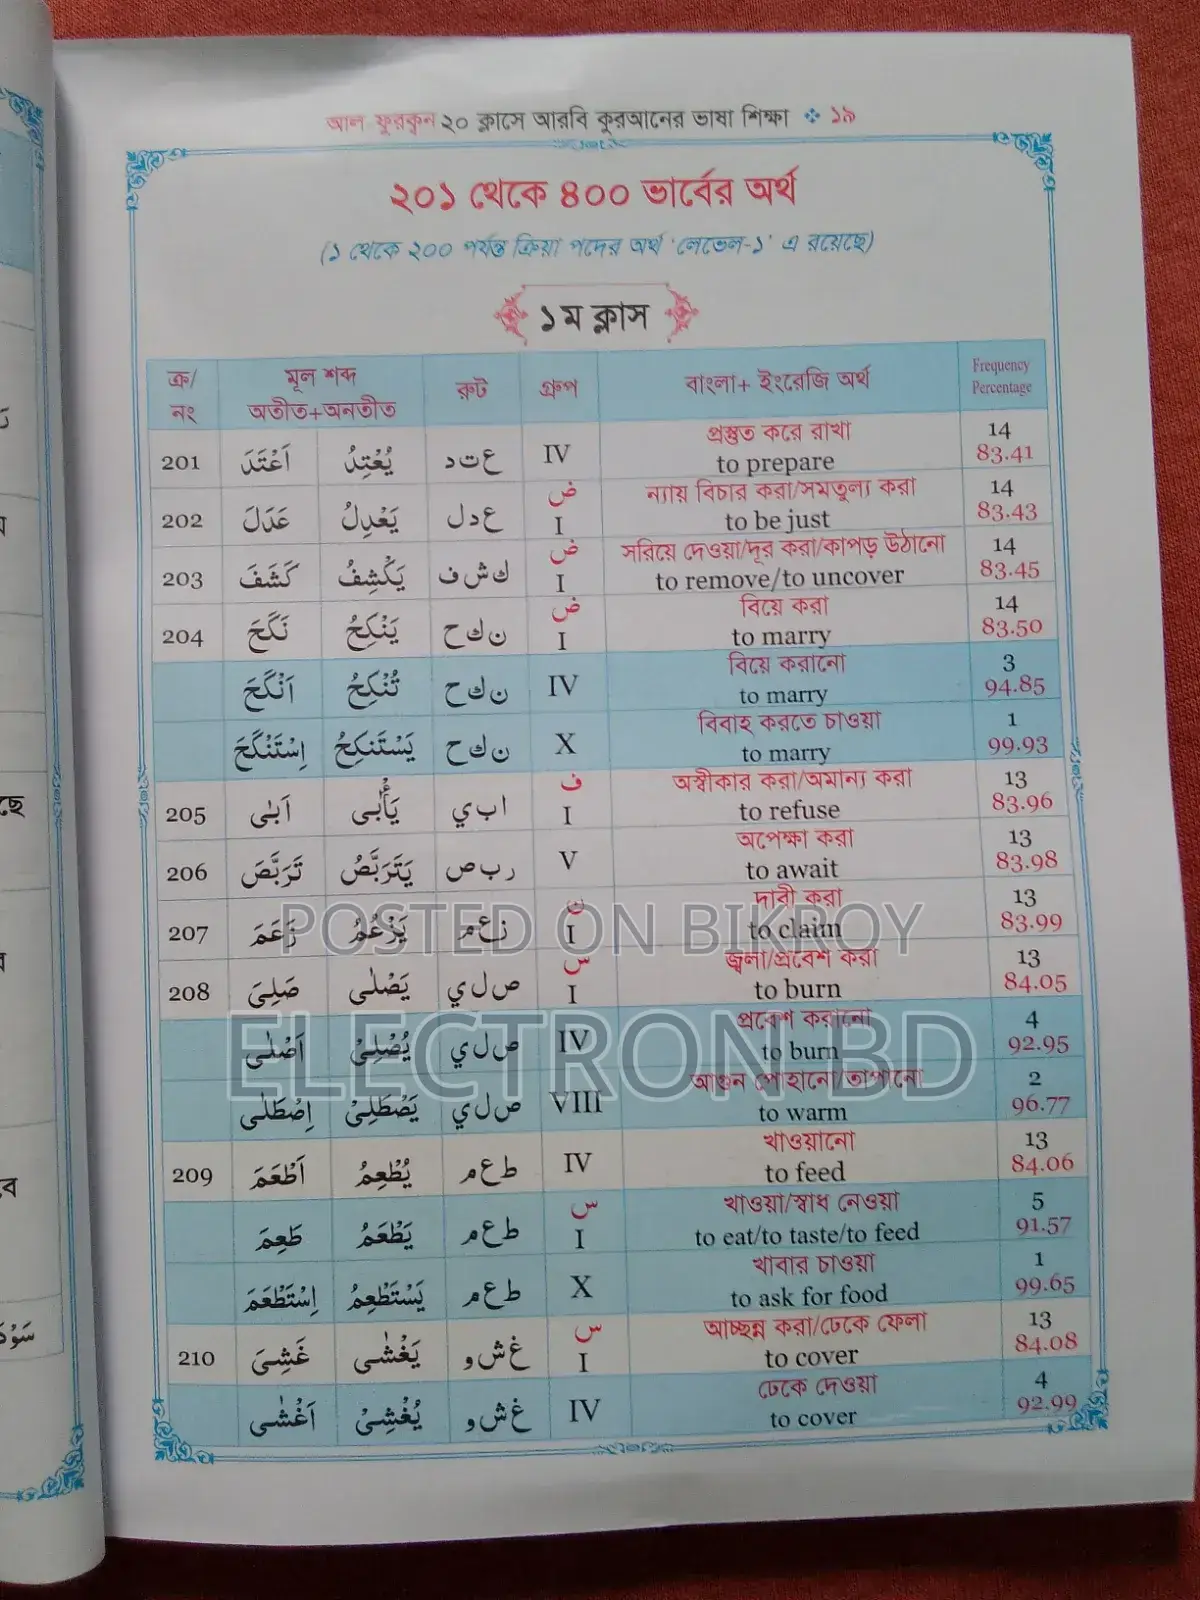 আল ফুরকুন ২০ ক্লাসে আরবি কুরআনের ভাষা শিক্ষা ❖ ১৯
২০১ থেকে ৪০০ ভার্বের অর্থ
(১ থেকে ২০০ পর্যন্ত ক্রিয়া পদের অর্থ 'লেভেল-১' এ রয়েছে)
১ম ক্লাস
ক্র/নং মূল শব্দ অতীত+অনতীত রুট গ্রুপ বাংলা+ ইংরেজি অর্থ Frequency Percentage
201 اَعْتَدَ يُعْتِدُ ع ت د IV প্রস্তুত করে রাখা 14
to prepare 83.41
202 عَدَلَ يَعْدِلُ ع د ل ض I ন্যায় বিচার করা/সমতুল্য করা 14
to be just 83.43
203 كَشَفَ يَكْشِفُ ك ش ف ض I সরিয়ে দেওয়া/দূর করা/কাপড় উঠানো 14
to remove/to uncover 83.45
204 نَكَحَ يَنْكِحُ ن ك ح ض I বিয়ে করা 14
to marry 83.50
اَنْكَحَ تُنْكِحُ ن ك ح IV বিয়ে করানো 3
to marry 94.85
اِسْتَنْكَحَ يَسْتَنكِحُ ن ك ح X বিবাহ করতে চাওয়া 1
to marry 99.93
205 اَبٰى يَأْبٰى ا ب ي ف I অস্বীকার করা/অমান্য করা 13
to refuse 83.96
206 تَرَبَّصَ يَتَرَبَّصُ ر ب ص V অপেক্ষা করা 13
to await 83.98
207 زَعَمَ يَزْعُمُ ز ع م ن I দাবী করা 13
to claim 83.99
208 صَلِىَ يَصْلٰى ص ل ي س I জ্বলা/প্রবেশ করা 13
to burn 84.05
اَصْلٰى يُصْلِىْ ص ل ي IV প্রবেশ করানো 4
to burn 92.95
اِصْطَلٰى يَصْطَلِىْ ص ل ي VIII আগুন পোহানো/তাপানো 2
to warm 96.77
209 اَطْعَمَ يُطْعِمُ ط ع م IV খাওয়ানো 13
to feed 84.06
طَعِمَ يَطْعَمُ ط ع م س I খাওয়া/স্বাধ নেওয়া 5
to eat/to taste/to feed 91.57
اِسْتَطْعَمَ يَسْتَطْعِمُ ط ع م X খাবার চাওয়া 1
to ask for food 99.65
210 غَشِىَ يَغْشٰى غ ش و س I আচ্ছন্ন করা/ঢেকে ফেলা 13
to cover 84.08
اَغْشٰى يُغْشِىْ غ ش و IV ঢেকে দেওয়া 4
to cover 92.99
POSTED ON BIKROY
ELECTRON BD